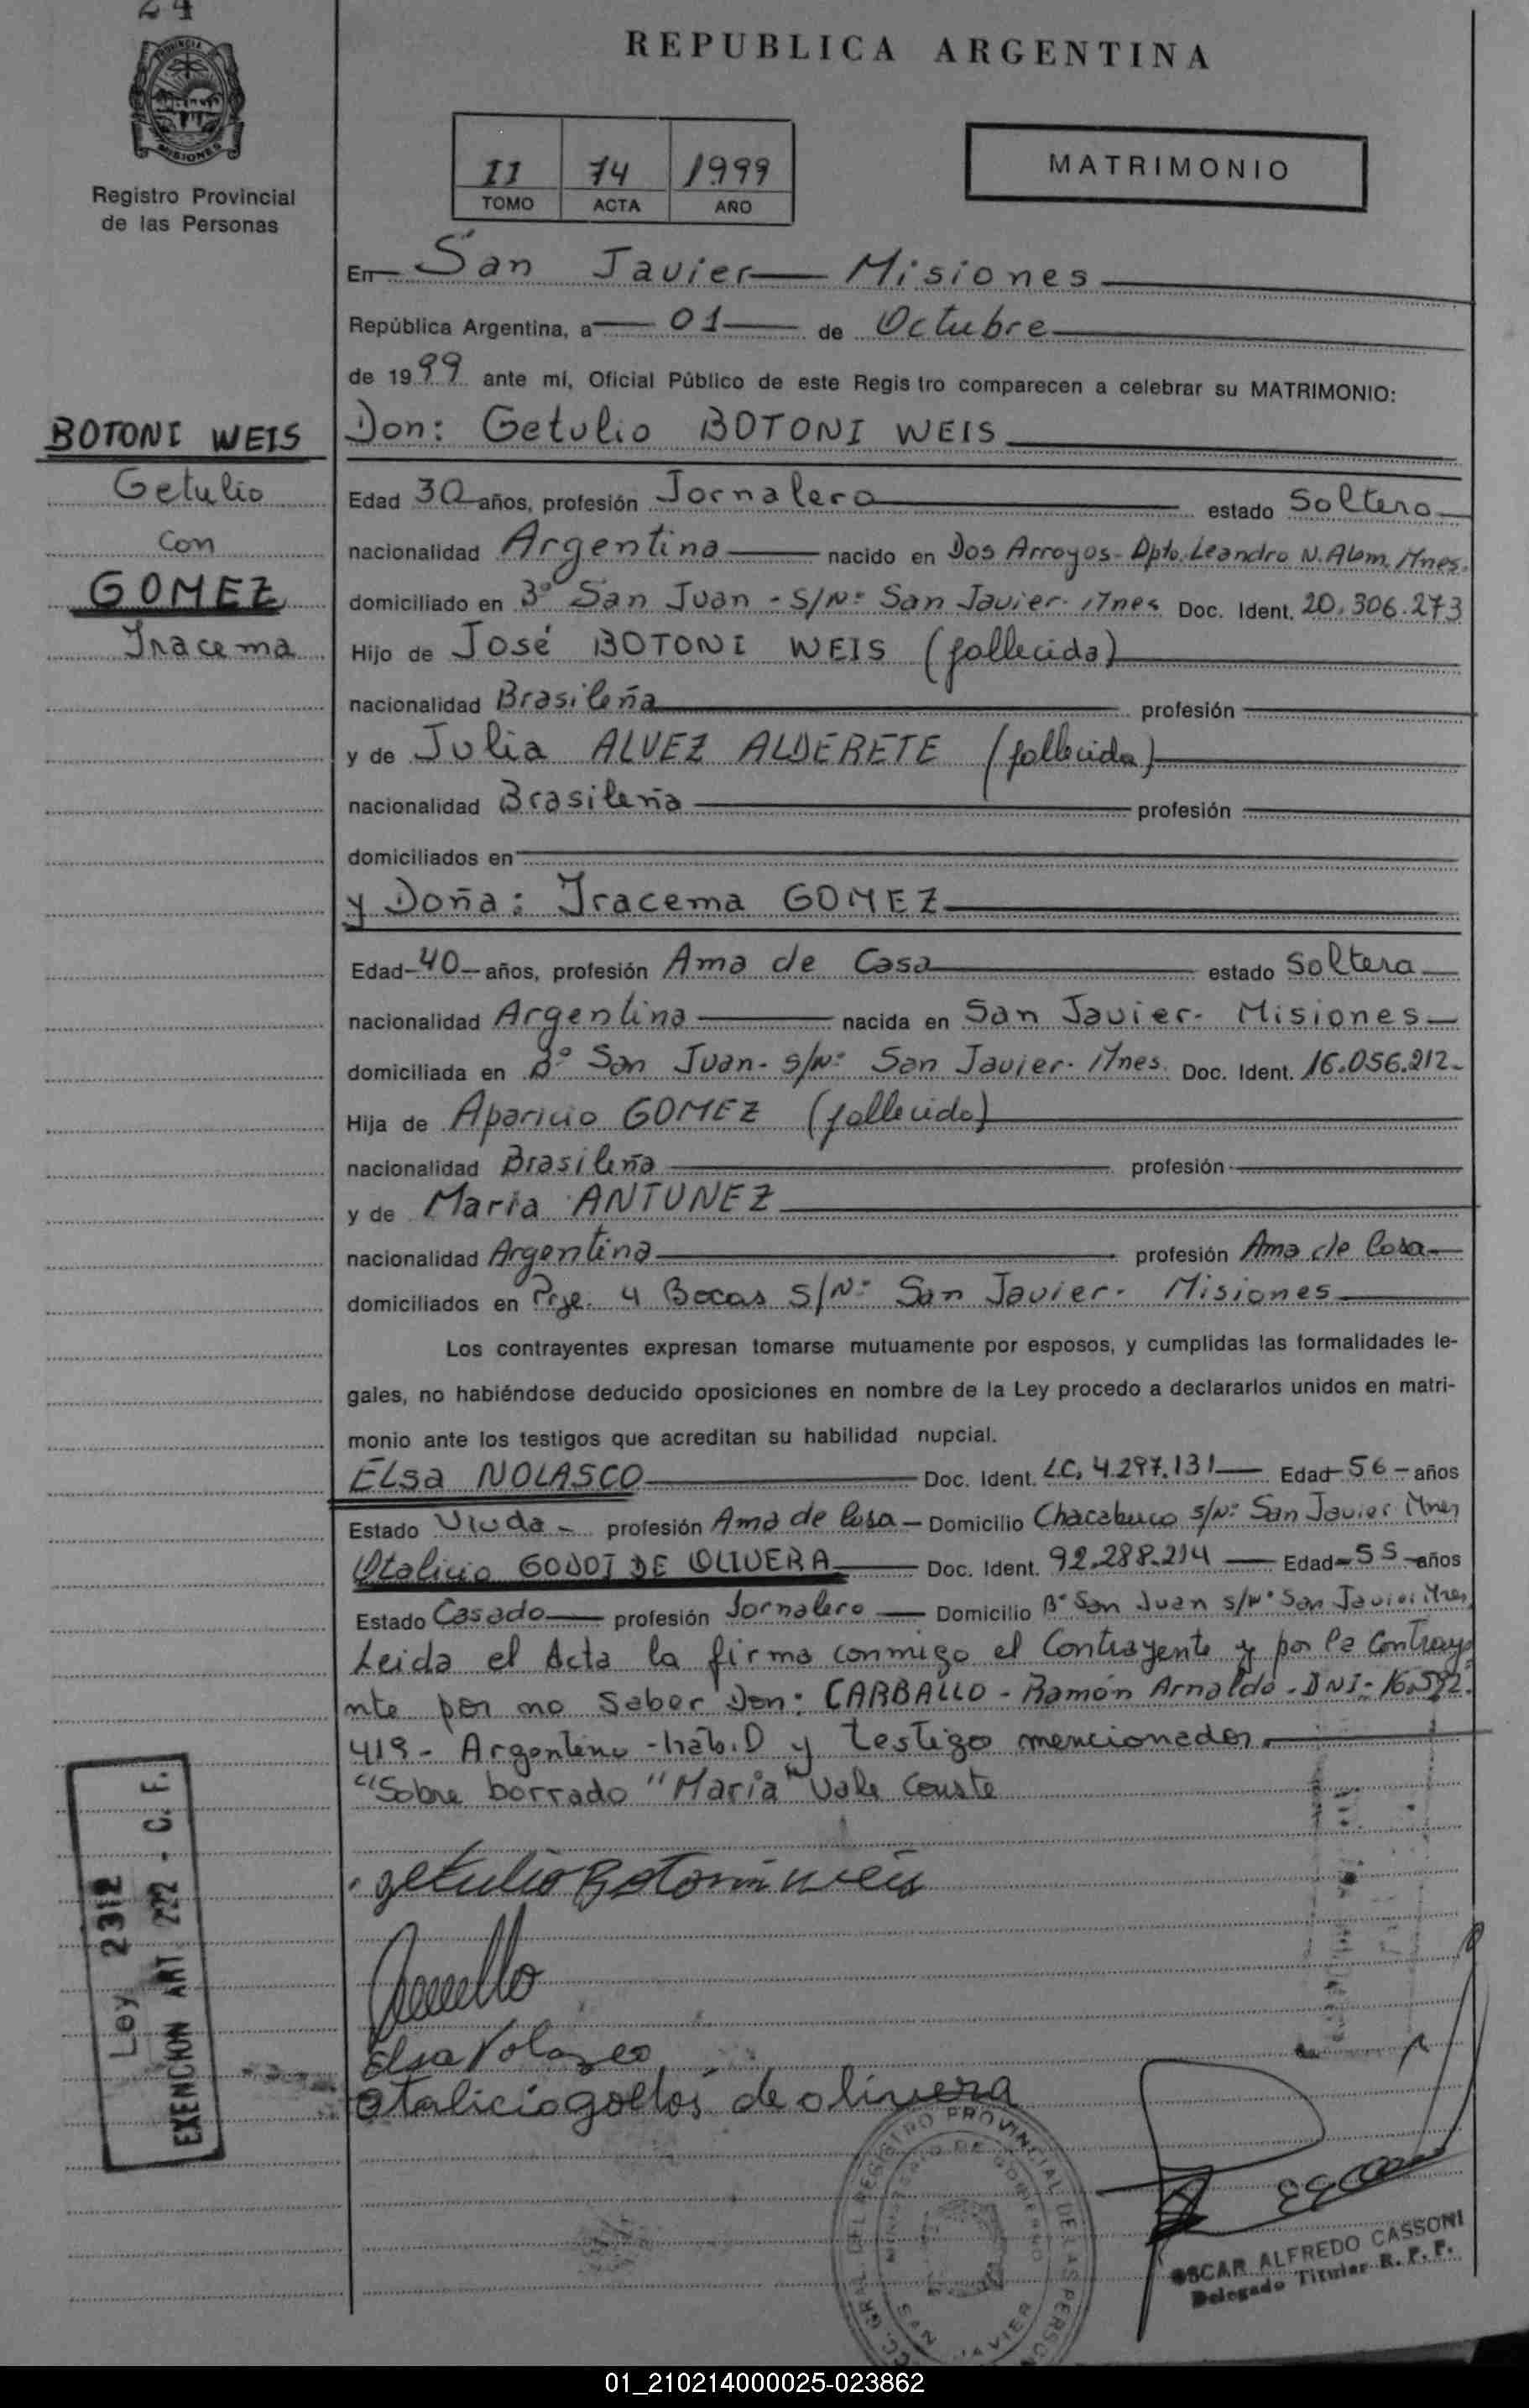 24
REPUBLICA ARGENTINA
MISIONES
Registro Provincial
de las Personas
II 74 1999
TOMO ACTA AÑO
MATRIMONIO
En San Javier Misiones
República Argentina, a 01 de Octubre
de 1999 ante mí, Oficial Público de este Regis tro comparecen a celebrar su MATRIMONIO:
BOTONI WEIS
Getulio
con
GOMEZ
Iracema
Don: Getulio BOTONI WEIS
Edad 30 años, profesión Jornalero estado Soltero
nacionalidad Argentina nacido en Dos Arroyos- Dpto. Leandro N. Alem. Mnes.
domiciliado en Bº San Juan - S/Nº San Javier- Mnes Doc. Ident. 20.306.273
Hijo de José BOTONI WEIS (fallecido)
nacionalidad Brasileña profesión
y de Julia ALVEZ ALDERETE (fallecida)
nacionalidad Brasileña profesión
domiciliados en
y Doña: Iracema GOMEZ
Edad 40 años, profesión Ama de Casa estado Soltera
nacionalidad Argentina nacida en San Javier- Misiones
domiciliada en Bº San Juan- S/Nº San Javier- Mnes. Doc. Ident. 16.056.212-
Hija de Aparicio GOMEZ (fallecido)
nacionalidad Brasileña profesión
y de María ANTUNEZ
nacionalidad Argentina profesión Ama de Casa
domiciliados en Pje. 4 Bocas S/Nº San Javier- Misiones
Los contrayentes expresan tomarse mutuamente por esposos, y cumplidas las formalidades le-
gales, no habiéndose deducido oposiciones en nombre de la Ley procedo a declararlos unidos en matri-
monio ante los testigos que acreditan su habilidad nupcial.
Elsa NOLASCO Doc. Ident. LC. 4.297.131 Edad 56 años
Estado Viuda - profesión Ama de Casa - Domicilio Chacabuco S/Nº San Javier Mnes
Otalicio GODOI DE OLIVERA Doc. Ident. 92.288.214 Edad 55 años
Estado Casado profesión Jornalero Domicilio Bº San Juan S/Nº San Javier Mnes
Leida el Acta la firma conmigo el Contrayente y por la Contraye
nte por no Saber Don: CARBALLO - Ramón Arnaldo - DNI- 16.592.
419 - Argentino - háb.D y testigo mencionados
"Sobre borrado "María" Vale Conste
getulio Botoni weis
Elsa Nolasco
otalicio de olivera
Ley 2312
EXENCION ART 222 - C. F.
REGISTRO PROVINCIAL DE LAS PERSON
MINISTERIO DE GOBIERNO
SAN JAVIER
OSCAR ALFREDO CASSONI
Delegado Titular R. P. P.
01_210214000025-023862